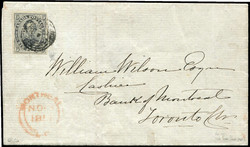 William Wilson Esqr
Cashier
Bank of Montreal
Toronto CW